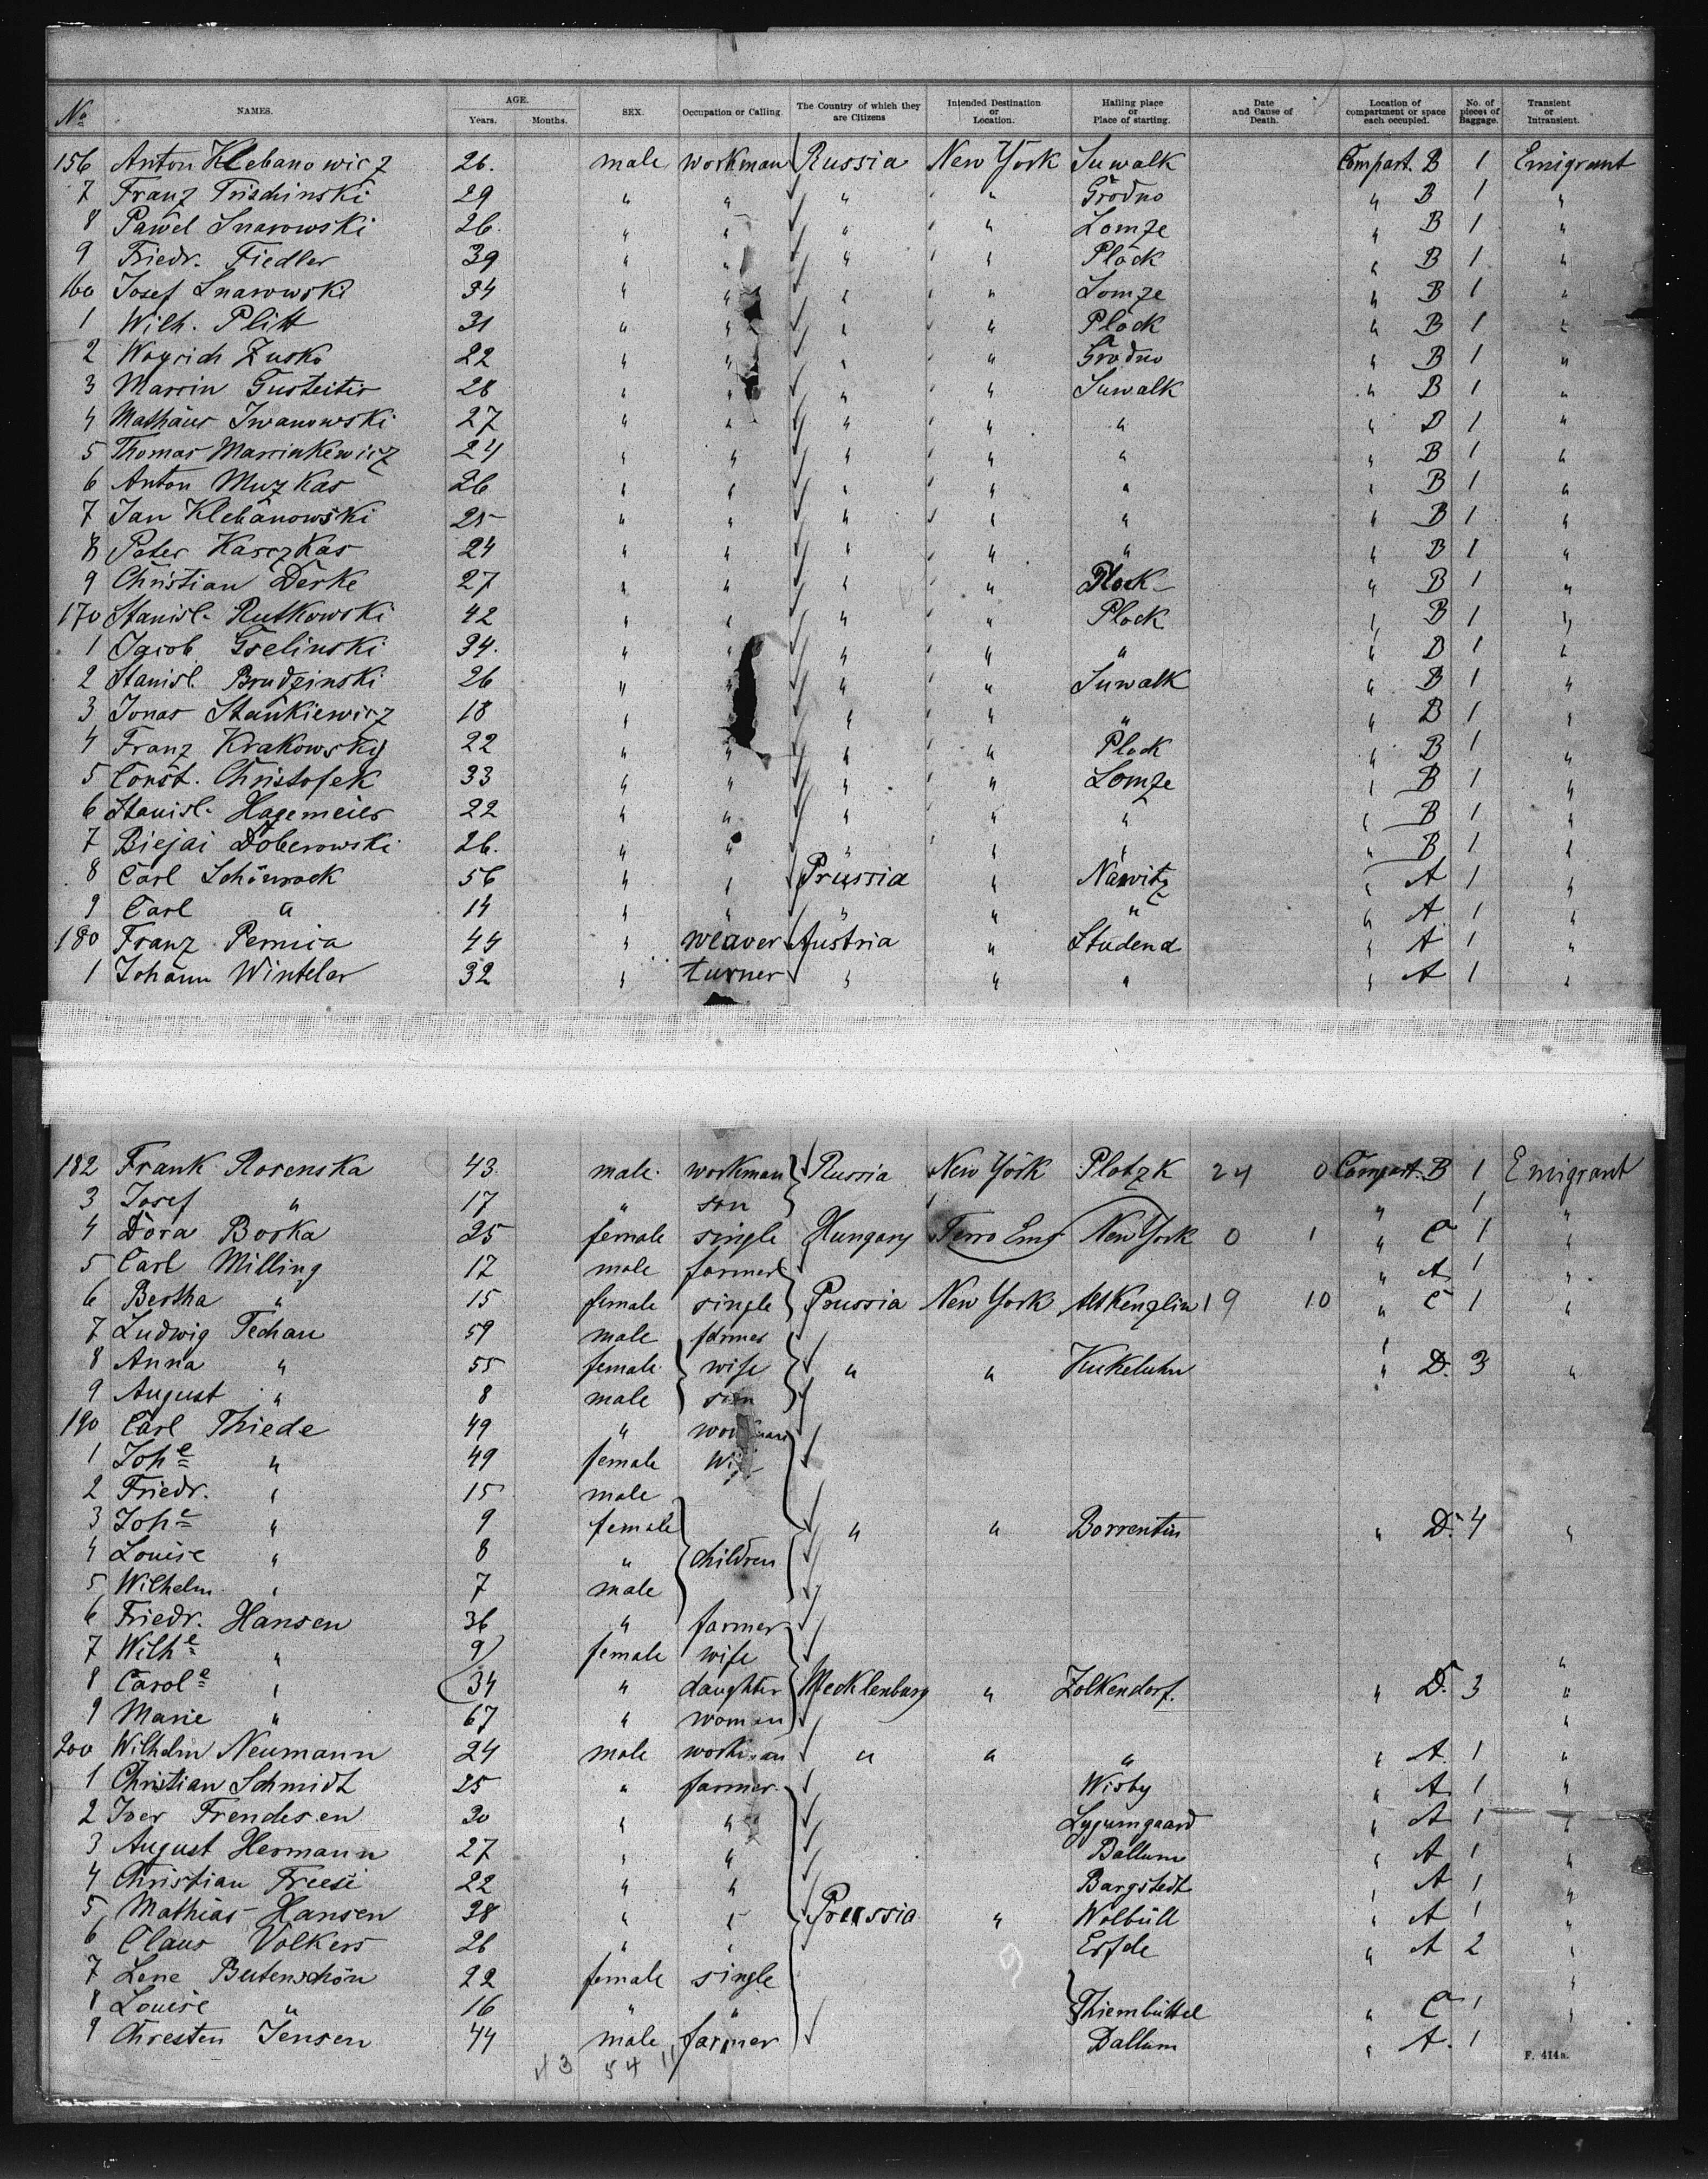 No NAMES. AGE. Years. Months. SEX. Occupation or Calling The Country of which they are Citizens Intended Destination or Location. Hailing place or Place of starting. Date and Cause of Death. Location of compartment or space each occupied. No. of pieces of Baggage. Transient or Intransient.
156 Anton Klebanowicz 26. male workman Russia New York Suwalk Compart. B 1 Emigrant
7 Franz Trischinski 29 " " " " Grodno " B 1 "
8 Pawel Snarowski 26. " " " " Lomze " B 1 "
9 Friedr. Fiedler 39 " " " " Plock " B 1 "
160 Josef Snarowski 34 " " " " Lomze " B 1 "
1 Wilh. Plitt 31 " " " " Plock " B 1 "
2 Woyrich Zusko 22 " " " " Grodno " B 1 "
3 Marcin Gusteitis 28 " " " " Suwalk " B 1 "
4 Mathäus Iwanowski 27 " " " " " " B 1 "
5 Thomas Marcinkewicz 24 " " " " " " B 1 "
6 Anton Muzkas 26 " " " " " " B 1 "
7 Jan Klebanowski 25 " " " " " " B 1 "
8 Peter Karczkas 24 " " " " " " B 1 "
9 Christian Derke 27 " " " " Plock " B 1 "
170 Stanisl. Rutkowski 42 " " " " Plock " B 1 "
1 Jacob Gselinski 34. " " " " " " B 1 "
2 Stanisl. Brudzinski 26 " " " " Suwalk " B 1 "
3 Jonas Stankiewicz 18 " " " " " B 1 "
4 Franz Krakowsky 22 " " " " Plock " B 1 "
5 Const. Christofek 33 " " " " Lomze " B 1 "
6 Stanisl. Hagemeier 22 " " " " " " B 1 "
7 Biejai Doberowski 26. " " " " " " B 1 "
8 Carl Schönrock 56 " " Prussia " Nawitz " A 1 "
9 Carl " 14 " " " " " " A 1 "
180 Franz Pernica 44 " weaver Austria " Studend " A 1 "
1 Johann Winteler 32 " turner " " " " A 1 "
182 Frank Rosenska 43 male workman Russia New York Plotzk 24 0 Compart. B 1 Emigrant
3 Josef " 17 " son " 1 "
4 Dora Boska 25 female single Hungary New York 0 1 " C 1 "
5 Carl Milling 17 male farmer " A 1 "
6 Bertha " 15 female single Prussia New York Alt Kenzlin 19 10 " C 1 "
7 Ludwig Techau 59 male farmer "
8 Anna " 55 female wife " " Kukeluhn " D. 3 "
9 August " 8 male son
190 Carl Thiede 49 " workman
1 Johe " 49 female
2 Friedr. " 15 male
3 Johe " 9 female " " Borrentin " D. 4 "
4 Louise " 8 " children
5 Wilhelm " 7 male
6 Friedr. Hansen 36 " farmer
7 Wilhe " 9 female wife "
8 Carole " 34 " daughter Mecklenburg " Zolkendorf. " D. 3 "
9 Marie " 67 " woman "
200 Wilhelm Neumann 24 male workman " " " " A 1 "
1 Christian Schmidt 25 " farmer Wisby " A 1 "
2 Iver Frendesen 30 " " Lygumgaard " A 1 "
3 August Hermann 27 " " Ballum " A 1 "
4 Christian Freese 22 " " Bargstedt " A 1 "
5 Mathias Hansen 28 " " Prussia " Wolbüll " A 1 "
6 Claus Volkers 26 " " Erfde " A 2 "
7 Lene Butenschön 22 female single "
8 Louise " 16 " " Thiembüttel " C 1 "
9 Chresten Jensen 44 male farmer Dallum " A. 1
43 54 11
F. 414a.